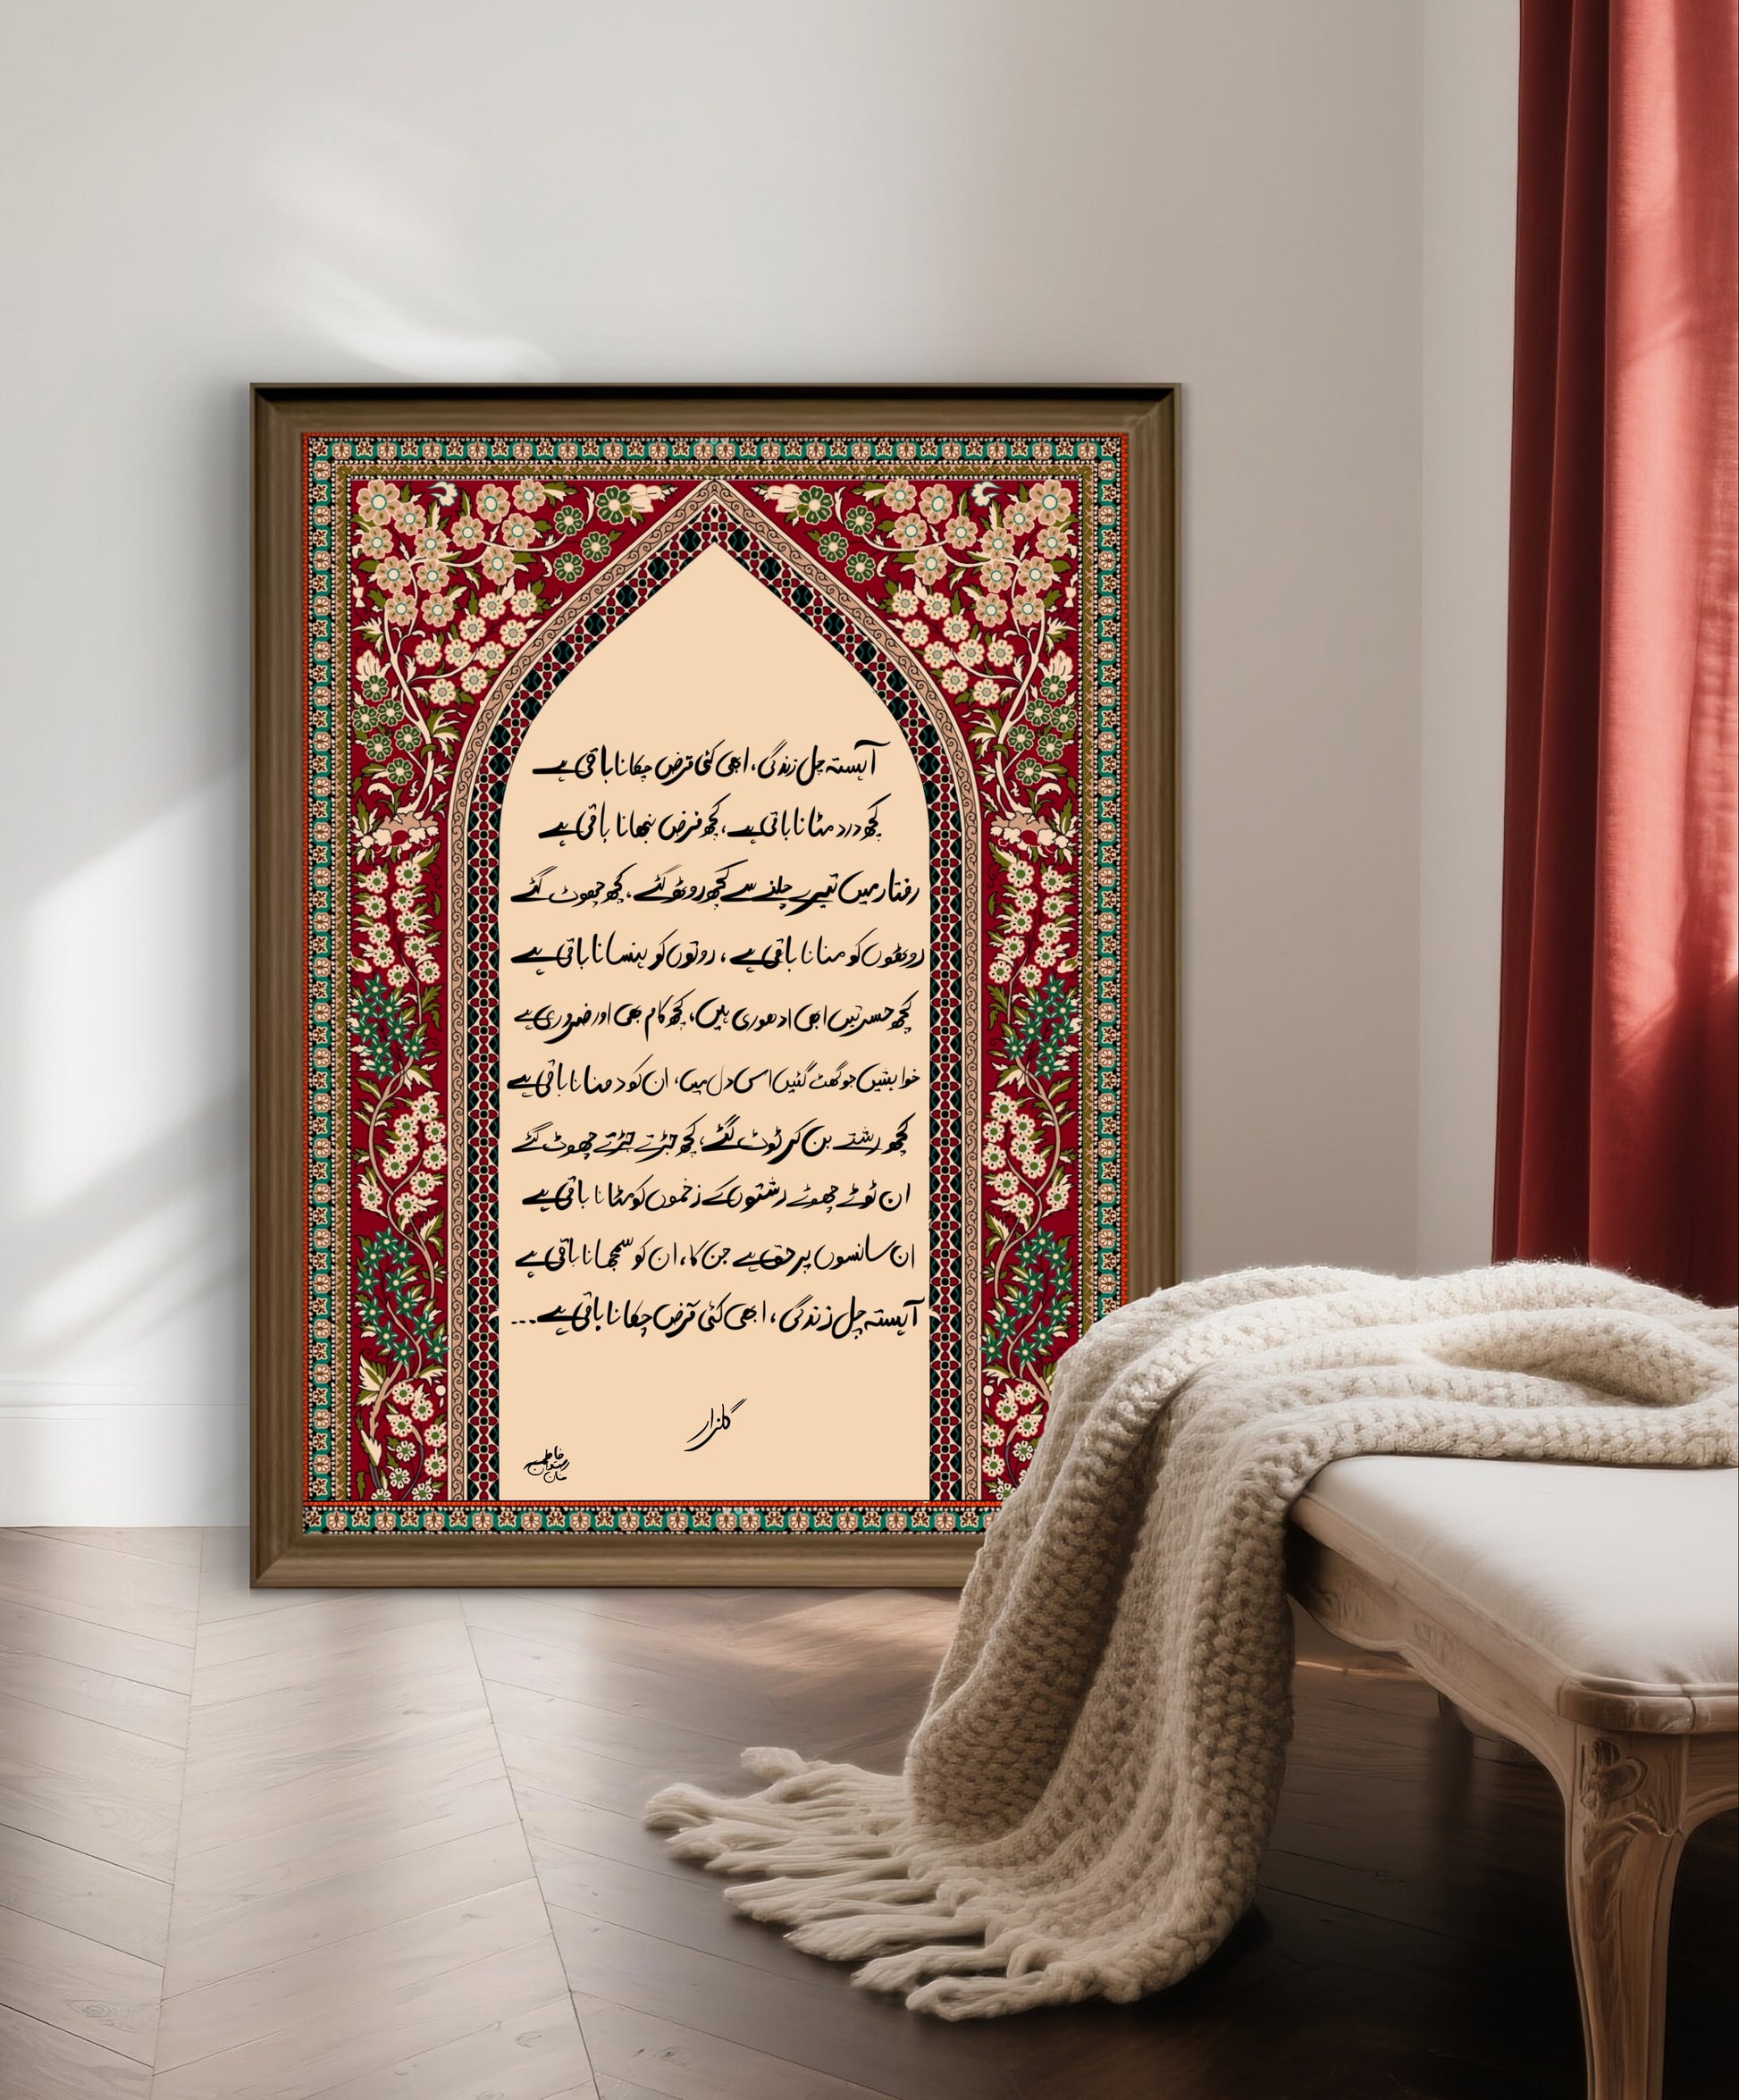 آہستہ چل زندگی، ابھی کئی قرض چکانا باقی ہے
کچھ درد مٹانا باقی ہے، کچھ فرض نبھانا باقی ہے
رفتار میں تیرے چلنے سے کچھ روٹھ گئے، کچھ چھوٹ گئے
روٹھوں کو منانا باقی ہے، روتوں کو ہنسانا باقی ہے
کچھ حسرتیں ابھی ادھوری ہیں، کچھ کام بھی اور ضروری ہے
خواہشیں جو گھٹ گئیں اس دل میں، ان کو دفنانا باقی ہے
کچھ رشتے بن کر ٹوٹ گئے، کچھ جڑتے جڑتے چھوٹ گئے
ان ٹوٹے چھوٹے رشتوں کے زخموں کو مٹانا باقی ہے
ان سانسوں پر حق ہے جن کا، ان کو سمجھانا باقی ہے
آہستہ چل زندگی، ابھی کئی قرض چکانا باقی ہے...
گلزار
فاطمہ رضوان خان